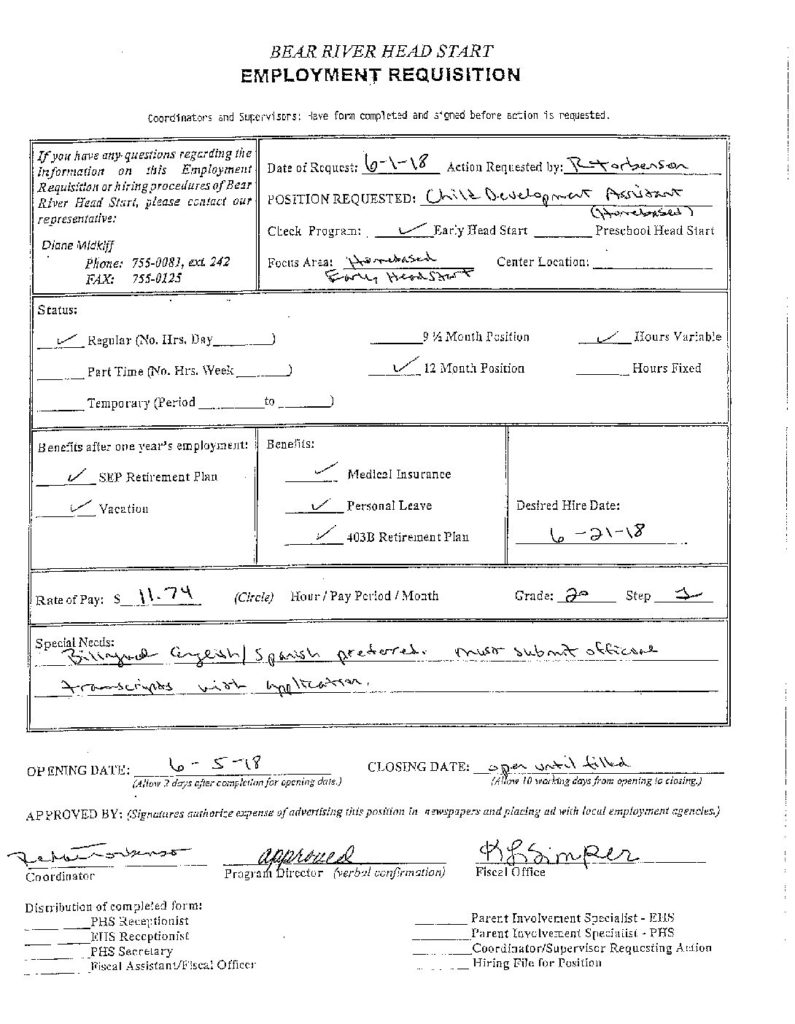 BEAR RIVER HEAD START
EMPLOYMENT REQUISITION
Coordinators and Supervisors: Have form completed and signed before action is requested.
If you have any questions regarding the
information on this Employment
Requisition or hiring procedures of Bear
River Head Start, please contact our
representative:
Diane Midkiff
Phone: 755-0081, ext. 242
FAX: 755-0125
Date of Request: 6-1-18 Action Requested by: R Torbenson
POSITION REQUESTED: Child Development Assistant
(Homebased)
Check Program: ✓ Early Head Start ______ Preschool Head Start
Focus Area: Homebased Center Location: ______
Early Head Start
Status:
✓ Regular (No. Hrs. Day ______) ______ 9 ½ Month Position ✓ Hours Variable
______ Part Time (No. Hrs. Week ______) ✓ 12 Month Position ______ Hours Fixed
______ Temporary (Period ______ to ______)
Benefits after one year's employment:
✓ SEP Retirement Plan
✓ Vacation
Benefits:
✓ Medical Insurance
✓ Personal Leave
✓ 403B Retirement Plan
Desired Hire Date:
6-21-18
Rate of Pay: $ 11.74 (Circle) Hour / Pay Period / Month Grade: 20 Step 1
Special Needs:
Billingual English/Spanish preferred. must submit officeal
transcripts with application.
OPENING DATE: 6-5-18 CLOSING DATE: open until filled
(Allow 2 days after completion for opening date.) (Allow 10 working days from opening to closing.)
APPROVED BY: (Signatures authorize expense of advertising this position in newspapers and placing ad with local employment agencies.)
Torbenson approved KLSimper
Coordinator Program Director (verbal confirmation) Fiscal Office
Distribution of completed form:
______ PHS Receptionist
______ EHS Receptionist
______ PHS Secretary
______ Fiscal Assistant/Fiscal Officer
______ Parent Involvement Specialist - EHS
______ Parent Involvement Specialist - PHS
______ Coordinator/Supervisor Requesting Action
______ Hiring File for Position